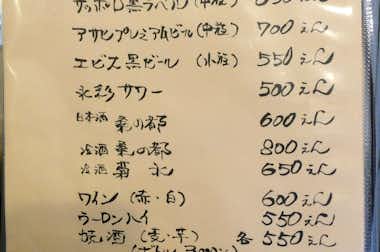 サッポロ黒ラベル(中瓶) 650えん
アサヒプレミアム生ビール(中瓶) 700えん
エビス黒ビール (小瓶) 550えん
氷彩サワー 500えん
日本酒 桑の都 600えん
冷酒 桑の都 800えん
冷酒 菊水 650えん
ワイン (赤・白) 600えん
ウーロンハイ 550えん
焼酎 (麦・芋) 各 550えん